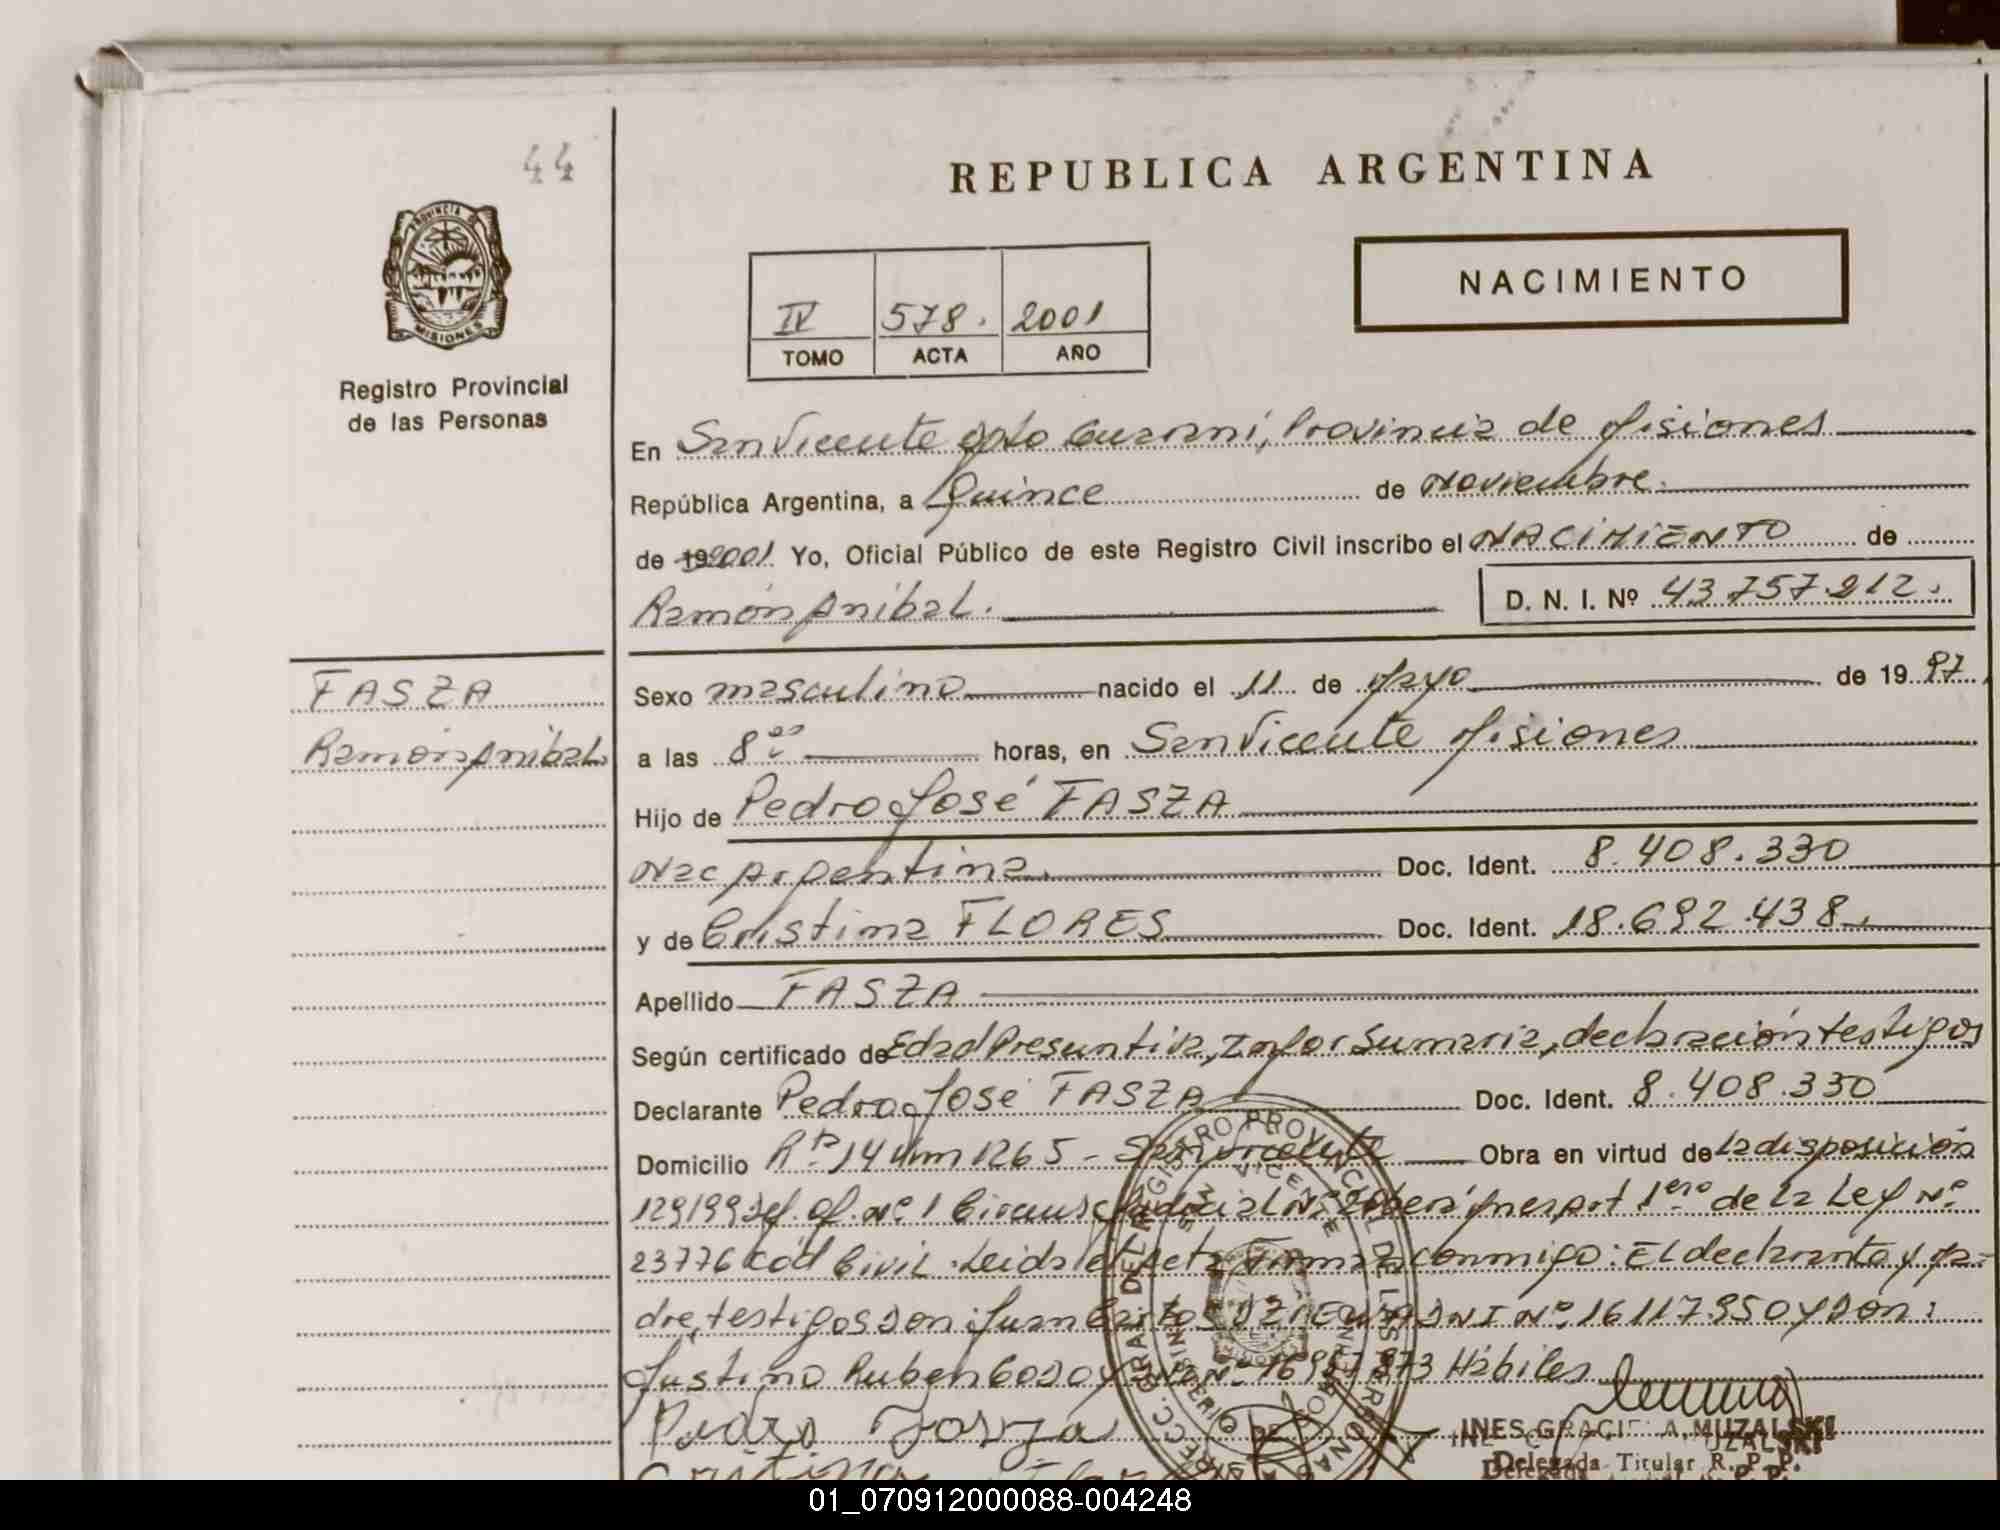 44
REPUBLICA ARGENTINA
PROVINCIA DE
MISIONES
NACIMIENTO
IV 578. 2001
TOMO ACTA AÑO
Registro Provincial
de las Personas
En San Vicente Dpto Guarani, Provincia de Misiones
República Argentina, a Quince de Noviembre.
de 192001 Yo, Oficial Público de este Registro Civil inscribo el NACIMIENTO de
Ramón Anibal. D. N. I. Nº 43.757.212.
FASZA
Ramón Anibal.
Sexo masculino nacido el 11 de Mayo de 19 97.
a las 8 00 horas, en San Vicente Misiones
Hijo de Pedro José FASZA
Nac Argentina. Doc. Ident. 8.408.330
y de Cristina FLORES Doc. Ident. 18.692.438.
Apellido FASZA
Según certificado de Edad Presuntiva, Infor Sumaria, declaración testigos
Declarante Pedro José FASZA Doc. Ident. 8.408.330
Domicilio Rta 14 Km 1265 - San Vicente Obra en virtud de la disposición
129/99 Of. Nº 1 art 1ero de la Ley Nº
23776 Cód Civil. Leida el Acta Firman conmigo: El declarante y Pa-
dre, testigos Don Juan Carlos DNI Nº 16117950 y Don:
Justino Ruben DNI Nº Hábiles
Pedro Fasza
Cristina
REGISTRO PROVINCIAL DE LAS PERSONAS
SAN VICENTE
MINISTERIO DE
INES GRACIELA MUZALSKI
Delegada Titular R. P. P.
01_070912000088-004248